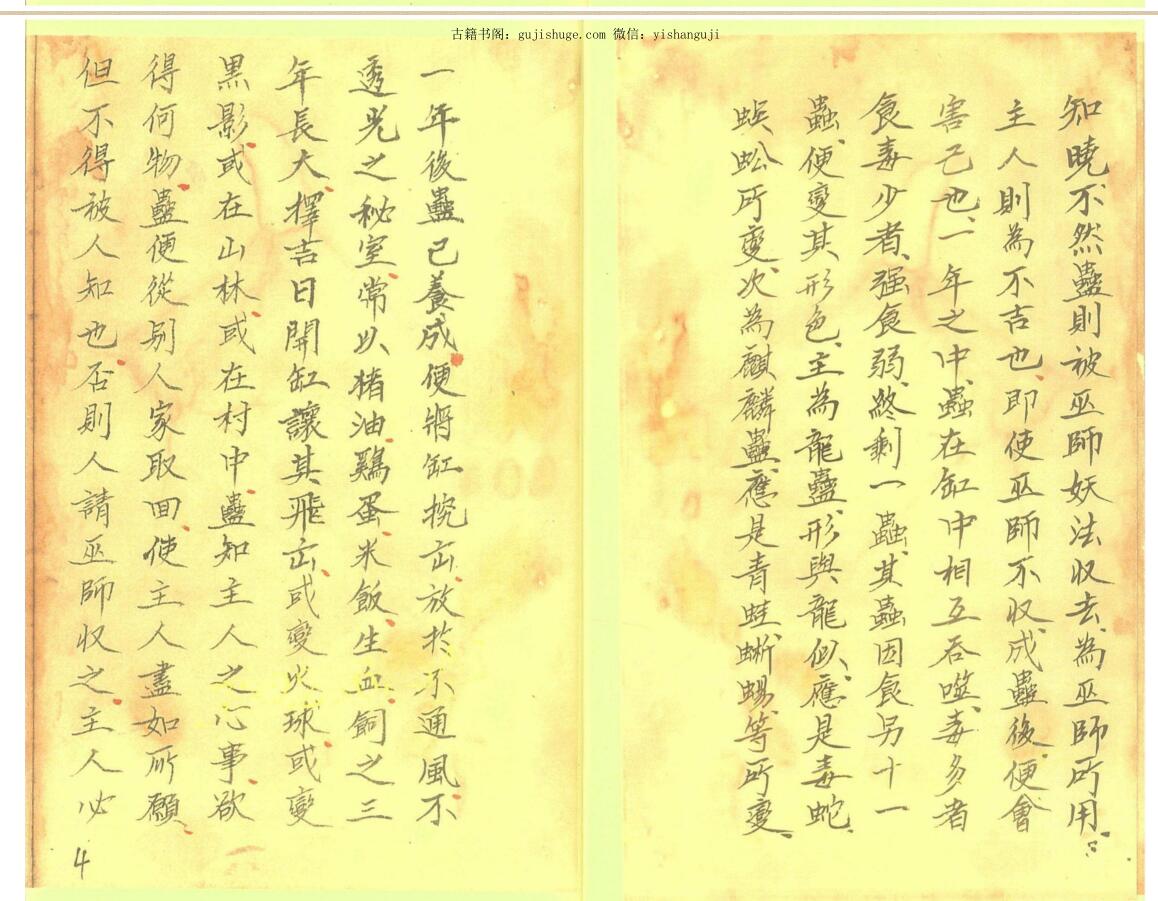 古籍书阁：gujishuge.com 微信：yishanguji
知曉、不然蠱則被巫師妖法収去、為巫師所用、
主人則為不吉也、即使巫師不収、成蠱後、便會
害己也、一年之中、蟲在缸中相互吞噬、毒多者
食毒少者、强食弱、終剩一蟲、其蟲因食另十一
蟲、便變其形色、主為龍蠱、形與龍似、應是毒蛇、
蜈蚣所變、次為麒麟蠱、應是青蛙、蜥蜴、等所變、
一年後蠱已養成、便將缸挽出、放於不通風、不
透光之秘室、常以楮油、鷄蛋、米飯、生血飼之、三
年長大、擇吉日開缸讓其飛出、或變火球、或變
黑影、或在山林、或在村中、蠱知主人之心事、欲
得何物、蠱便從别人家取回、使主人盡如所願、
但不得被人知也、否則人請巫師収之、主人必
4